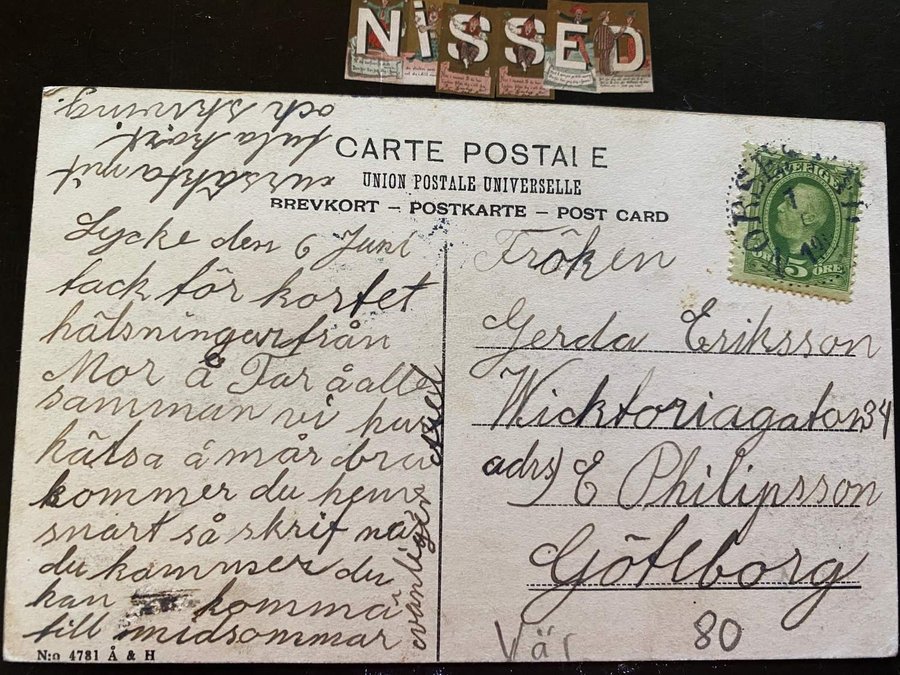 NISSED
CARTE POSTALE
UNION POSTALE UNIVERSELLE
BREVKORT – POSTKARTE – POST CARD
SVERIGE
5 ÖRE
Lycke den 6 Juni
tack för kortet
hälsningar från
Mor å Far å alle
samman vi har
hälsa å mår bra
kommer du hem
snart så skrif när
du kommer du
kan komma
till midsommar
vänligen
ursäkta mit
fula kort
och skrivning
Fröken
Gerda Eriksson
Wicktoriagatan 34
adrs) E Philipsson
Götlborg
Vär 80
N:o 4781 Å & H